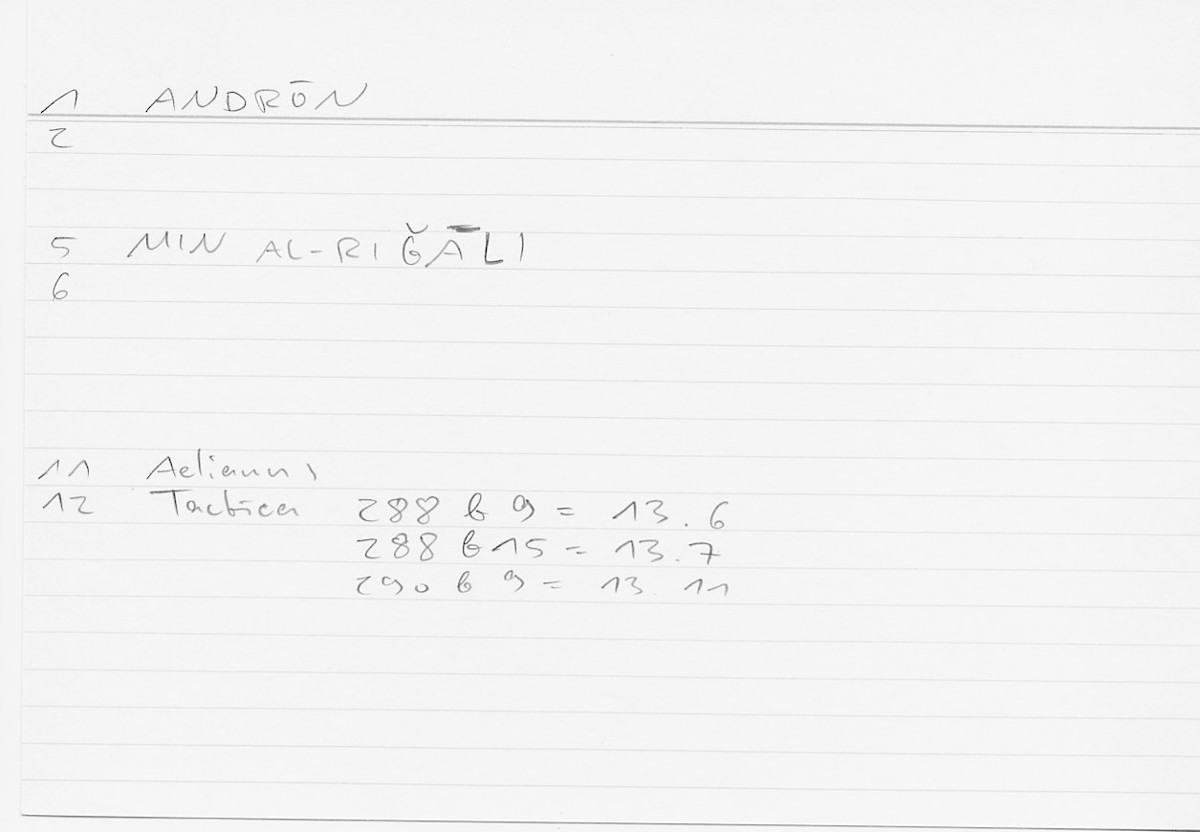 1 ANDRŌN
2
5 MIN AL-RIĞĀLI
6
11 Aelianus
12 Tactica 288 b 9 = 13.6
288 b 15 = 13.7
290 b 9 = 13.11